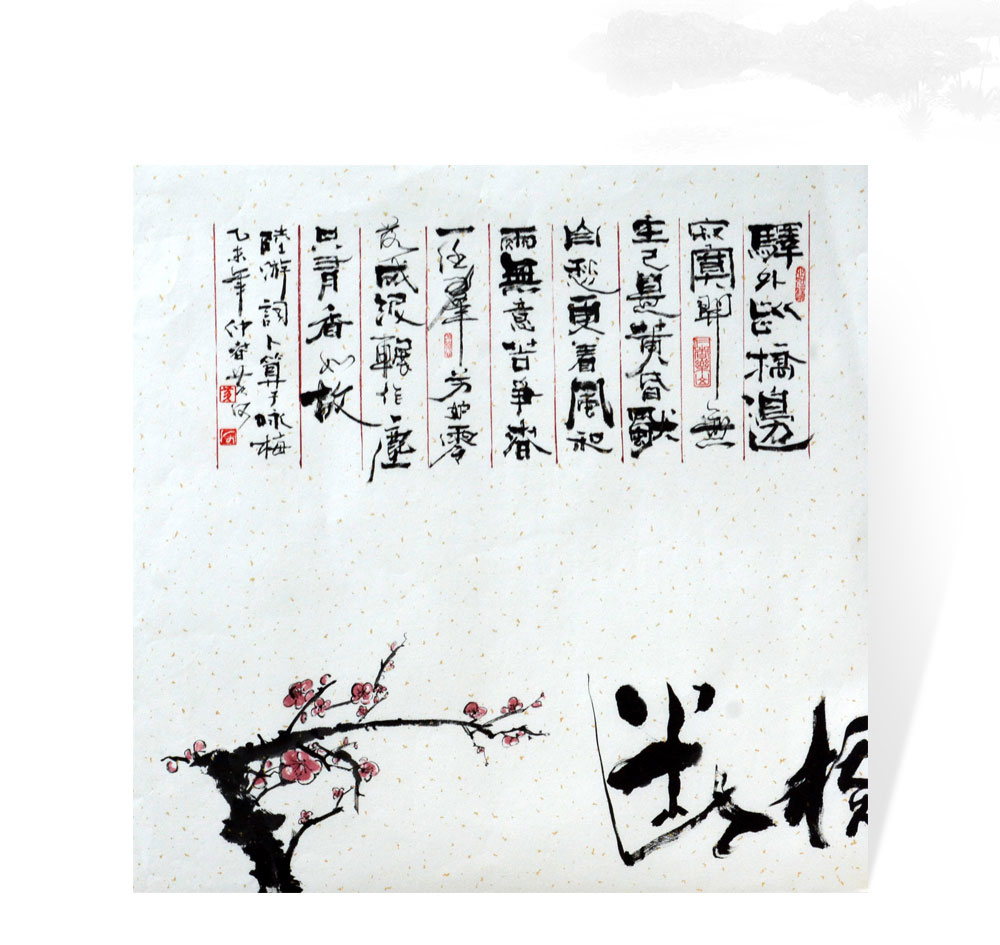 驛外斷橋邊
寂寞開無
主已是黃昏獨
自愁更着風和
雨無意苦爭春
一任羣芳妒零
落成泥輾作塵
只有香如故
陸游詞卜算子咏梅
乙未年仲春